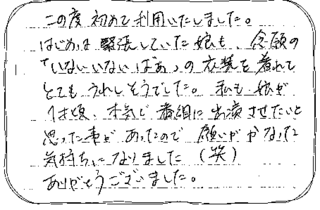 この度 初めて利用いたしました。
はじめは緊張していた娘も、念願の
「いないいないばあ」の衣装を着れて
とてもうれしそうでした。私も娘が
1才頃、本気で番組に出演させたいと
思った事があったので 願いがかなった
気持ちになりました(笑)
ありがとうございました。